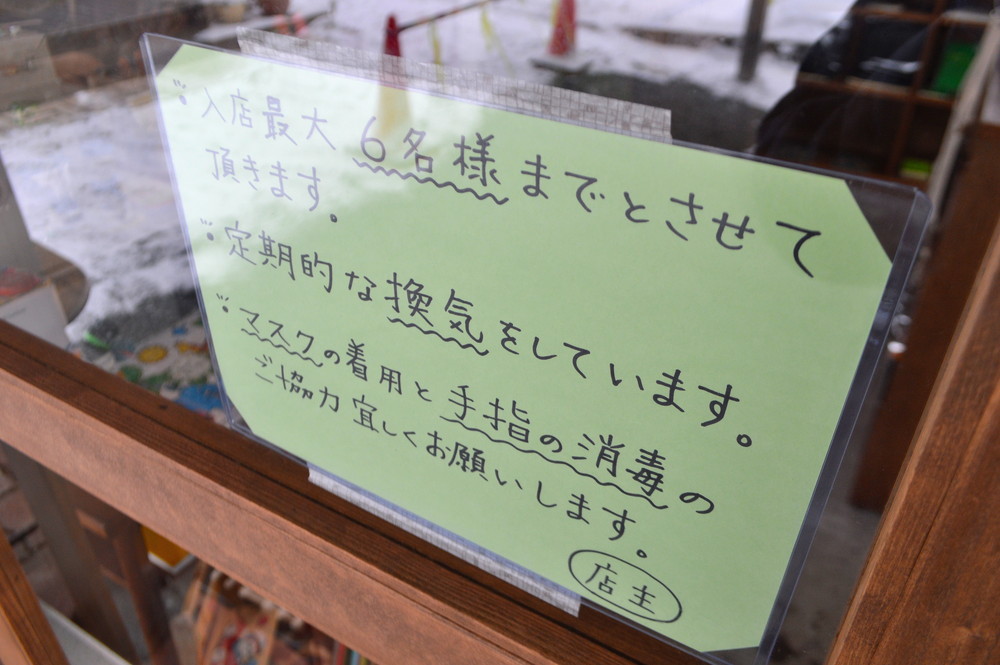 ※入店最大6名様までとさせて
頂きます。
※定期的な換気をしています。
※マスクの着用と手指の消毒の
ご協力宜しくお願いします。
店主